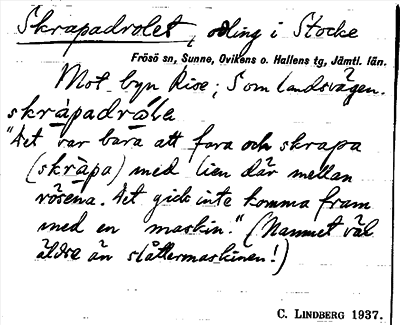 Skrapadrolet, odling i Stocke
Frösö sn, Sunne, Ovikens o. Hallens tg, Jämtl. län.
Mot byn Rise; S om landsvägen.
skràpadrǻla
"Det var bara att fara och skrapa
(skràpa) med lien där mellan
rösena. Det gick inte komma fram
med en maskin." (Namnet väl
äldre än slåttermaskinen!)
C. LINDBERG 1937.